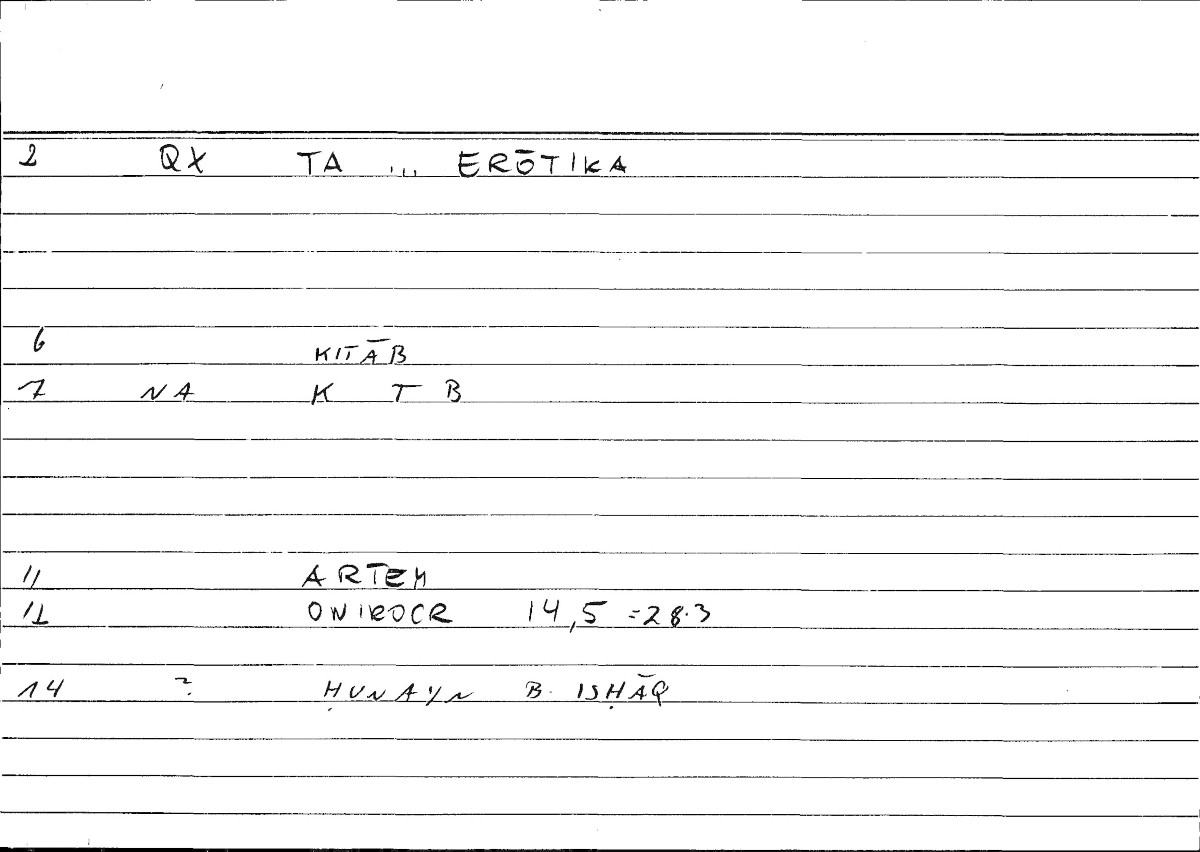 2 QX TA ... ERŌTIKA
6 KITĀB
7 NA K T B
11 ARTEM
12 ONIROCR 14,5 =28.3
14 ? ḤUNAYN B. ISḤĀQ